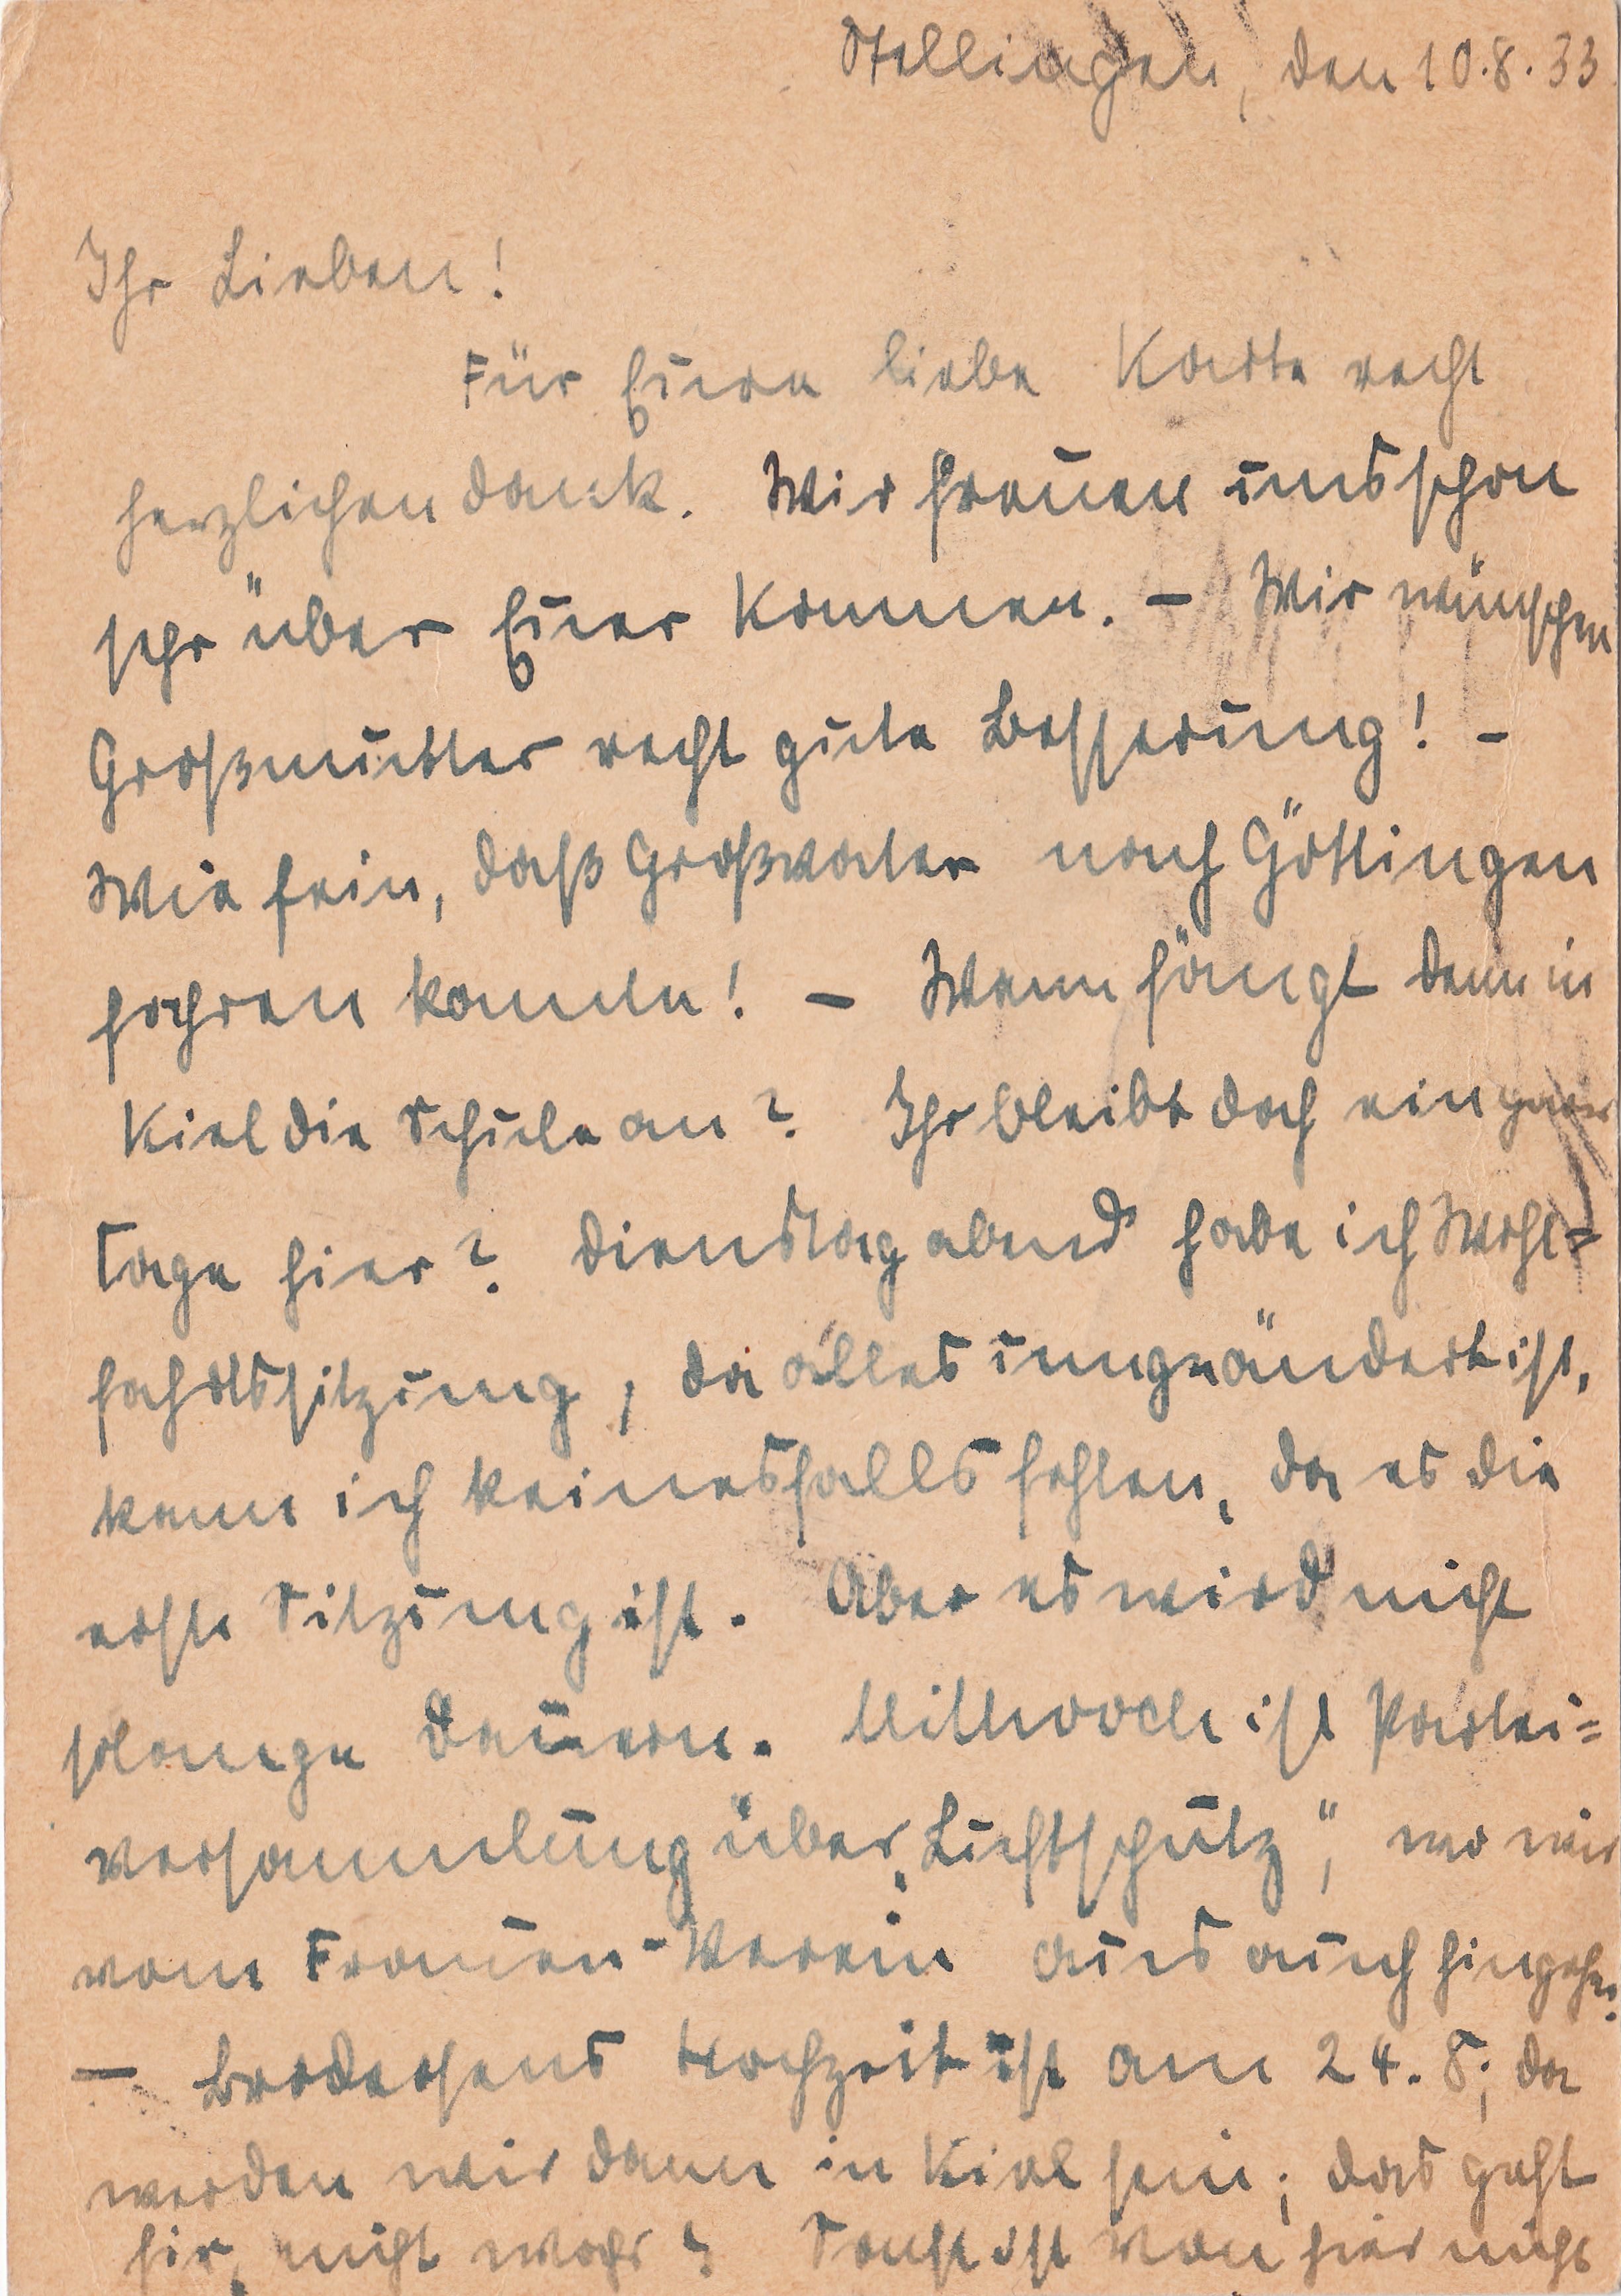 Stellingen, den 10.8.33
Ihr Lieben!
Für Eure liebe Karte recht
herzlichen Dank. Wir freuen uns schon
sehr über Euer Kommen. – Wir wünschen
Großmutter recht gute Besserung! –
Wie fein, daß Großvater nach Göttingen
fahren konnte! – Wann fängt denn in
Kiel die Schule an? Ihr bleibt doch ein paar
Tage hier? Dienstag abend habe ich Wohl=
fahrtssitzung, da alles umgeändert ist,
kann ich keinesfalls fehlen, da es die
erste Sitzung ist. Aber es wird nicht
solange dauern. Mittwoch ist Partei=
versammlung über „Luftschutz“, wo wir
vom Frauen-Verein aus auch hingehn.
– Brodersens Hochzeit ist am 24.8; da
werden wir dann in Kiel sein; das geht
nicht wahr? Sonst ist von hier nichts